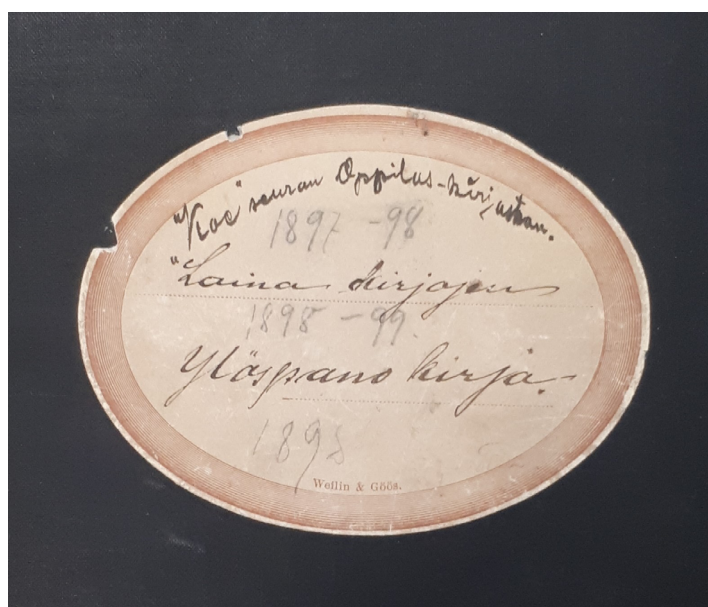 "Koe" seuran Oppilas-kirjaston.
1897-98
"Laina kirjojen
1898-99.
Ylöspano kirja.
1898
Weilin & Göös.